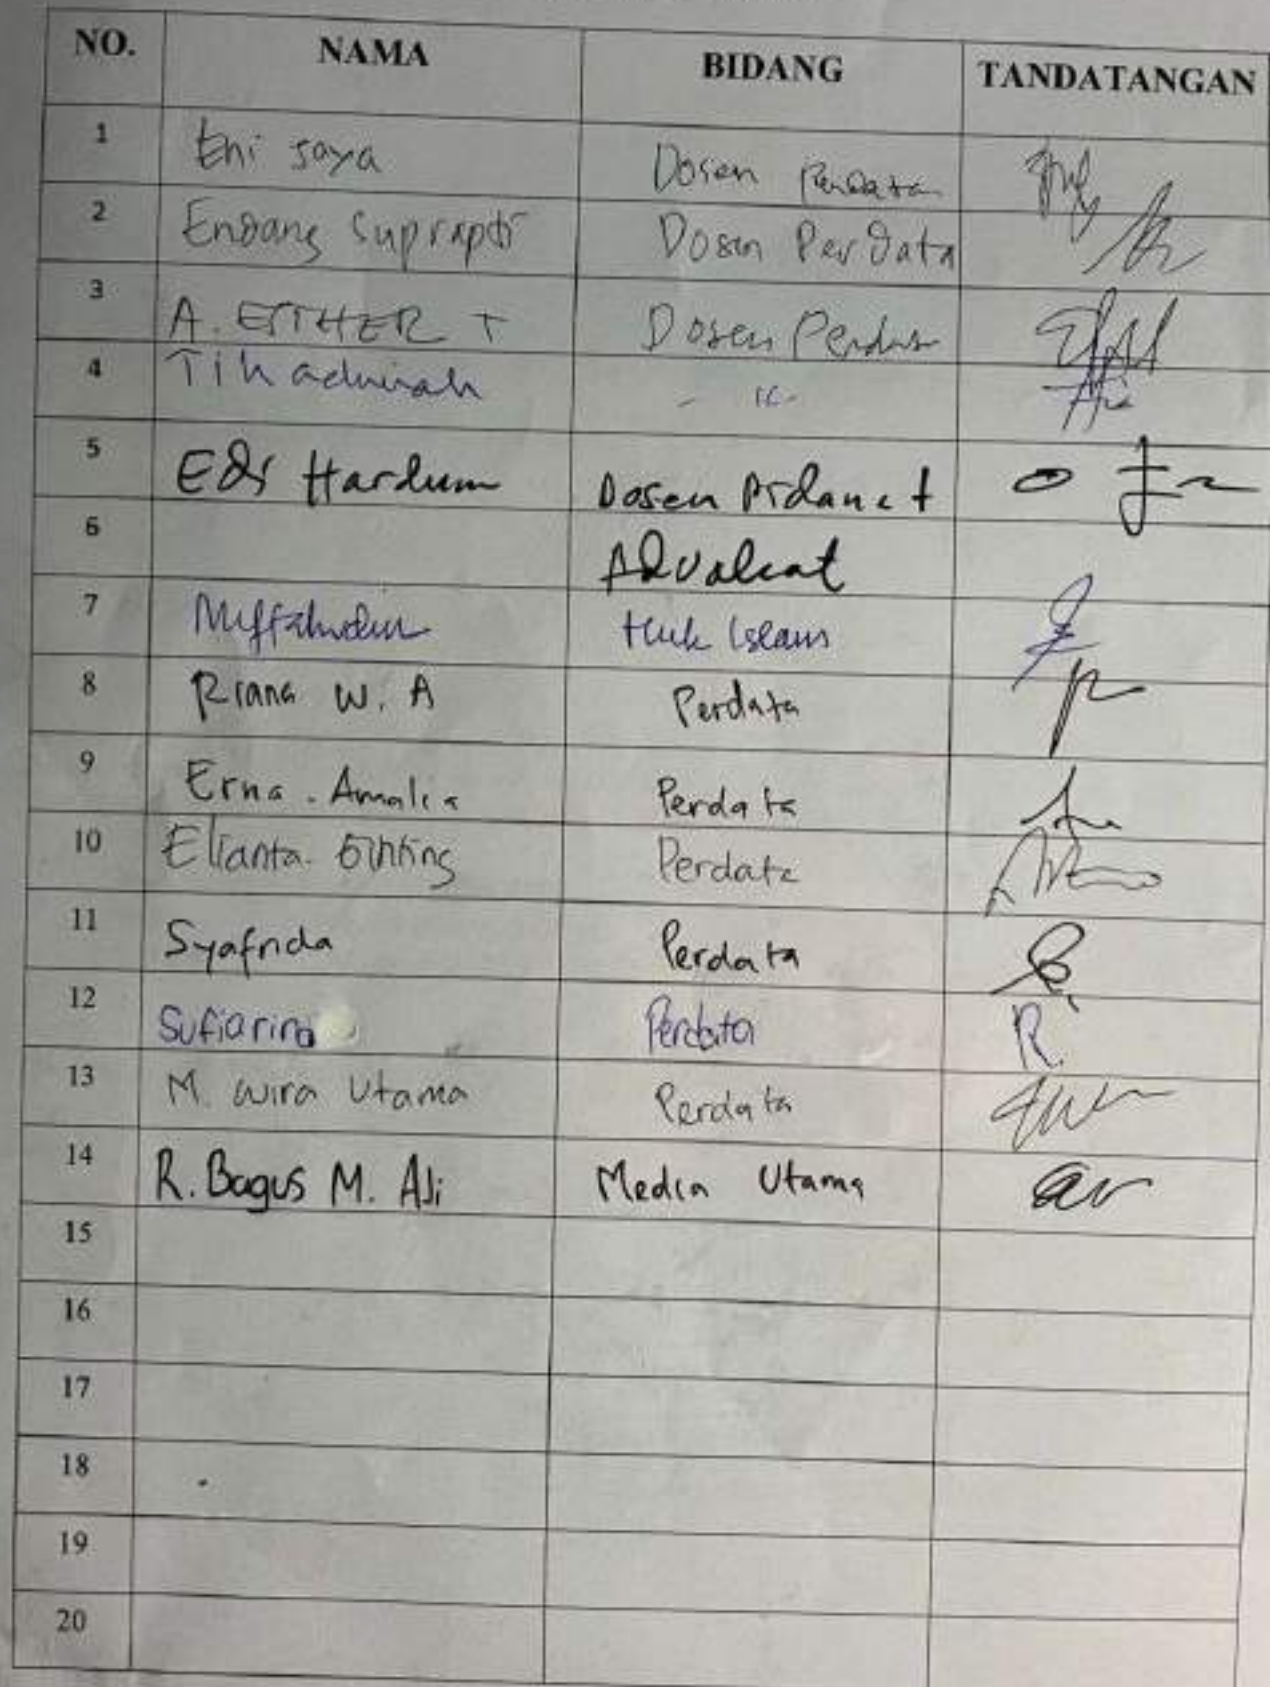 NO. NAMA BIDANG TANDATANGAN
1 Eni Jaya Dosen Perdata
2 Endang Suprapti Dosen Perdata
3 A. ESTHER T Dosen
4 - 11 -
5 Edi Hardum Dosen Pidana +
6 Advokat
7 Miftahudin Huk Islam
8 Riana W. A Perdata
9 Erna . Amalia Perdata
10 Elianta. Ginting Perdata
11 Syafrida Perdata
12 Sufiarina Perdata
13 M. Wira Utama Perdata
14 R. Bagus M. Ali Media Utama
15
16
17
18
19
20